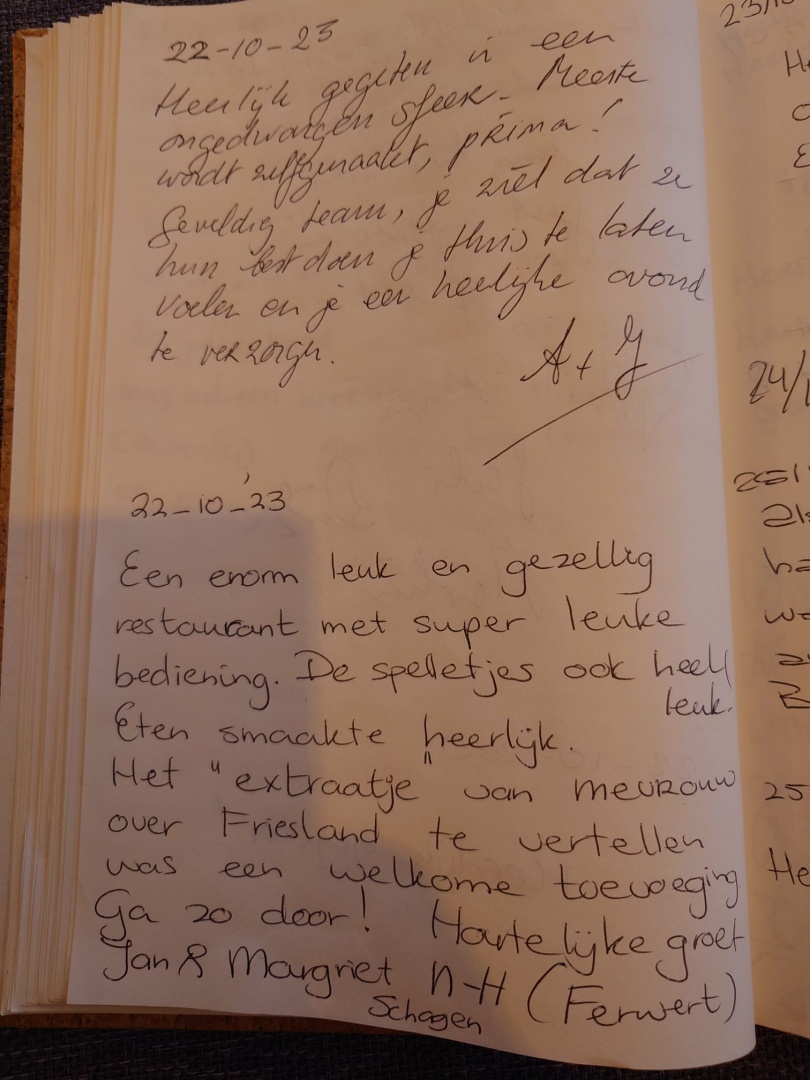 22-10-23
Heerlijk gegeten in een
ongedwongen sfeer. Meeste
wordt zelfgemaakt, prima!
Geweldig team, je ziet dat ze
hun best doen je thuis te laten
voelen en je een heerlijke avond
te verzorgen.
A + J
22-10-'23
Een enorm leuk en gezellig
restaurant met super leuke
bediening. De spelletjes ook heel
leuk.
Eten smaakte heerlijk.
Het "extraatje" van mevrouw
over Friesland te vertellen
was een welkome toevoeging
Ga zo door! Hartelijke groet
Jan & Margriet N-H (Ferwert)
Schagen
23/10
He
24/1
25/
ha
25
He